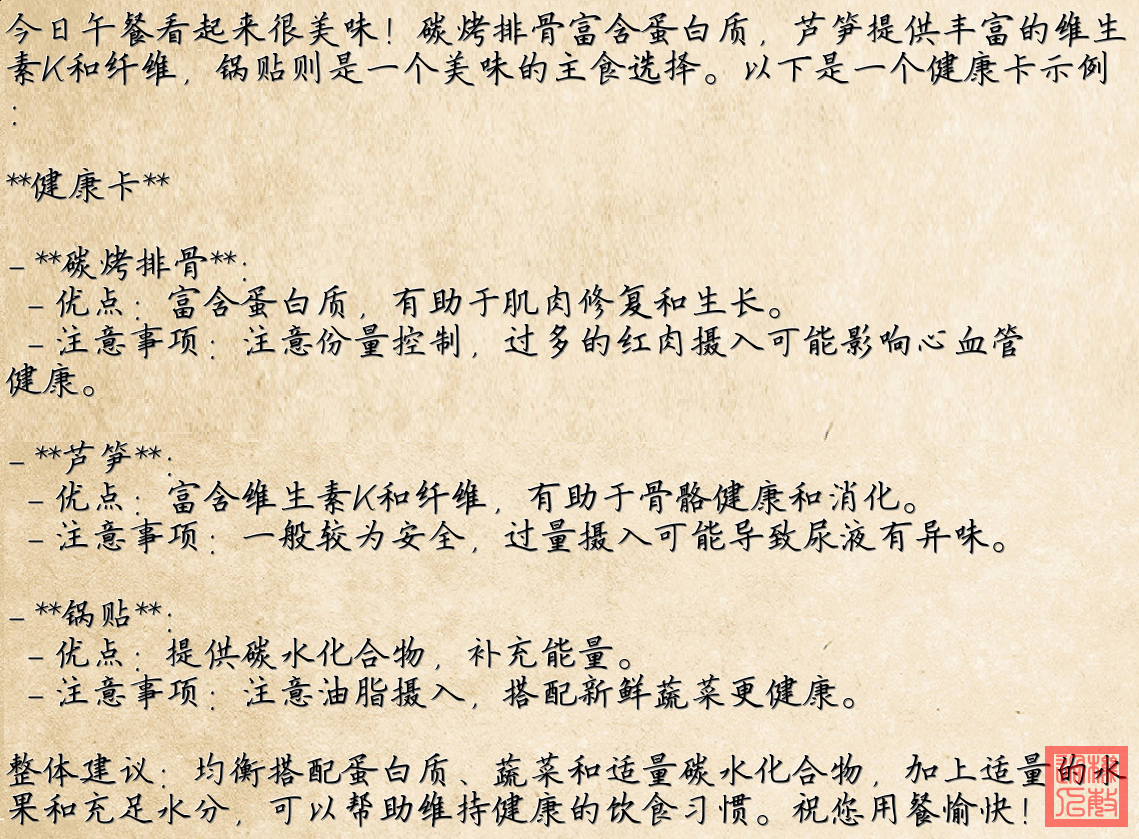 今日午餐看起来很美味！碳烤排骨富含蛋白质，芦笋提供丰富的维生
素K和纤维，锅贴则是一个美味的主食选择。以下是一个健康卡示例
：
**健康卡**
- **碳烤排骨**：
- 优点：富含蛋白质，有助于肌肉修复和生长。
- 注意事项：注意份量控制，过多的红肉摄入可能影响心血管
健康。
- **芦笋**：
- 优点：富含维生素K和纤维，有助于骨骼健康和消化。
- 注意事项：一般较为安全，过量摄入可能导致尿液有异味。
- **锅贴**：
- 优点：提供碳水化合物，补充能量。
- 注意事项：注意油脂摄入，搭配新鲜蔬菜更健康。
整体建议：均衡搭配蛋白质、蔬菜和适量碳水化合物，加上适量的水
果和充足水分，可以帮助维持健康的饮食习惯。祝您用餐愉快！